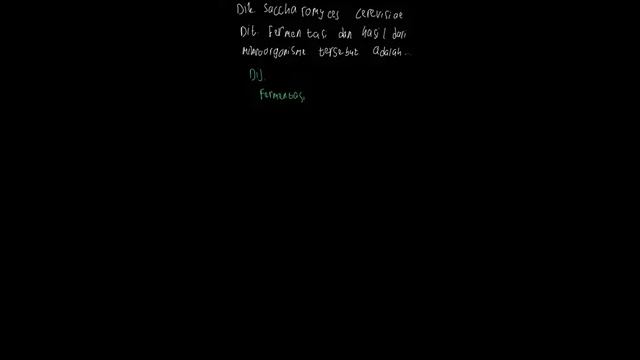 Dik Saccharomyces cerevisiae
Dit Fermentasi dan hasil dari
mikroorganisme tersebut adalah...
Dij.
Fermentasi